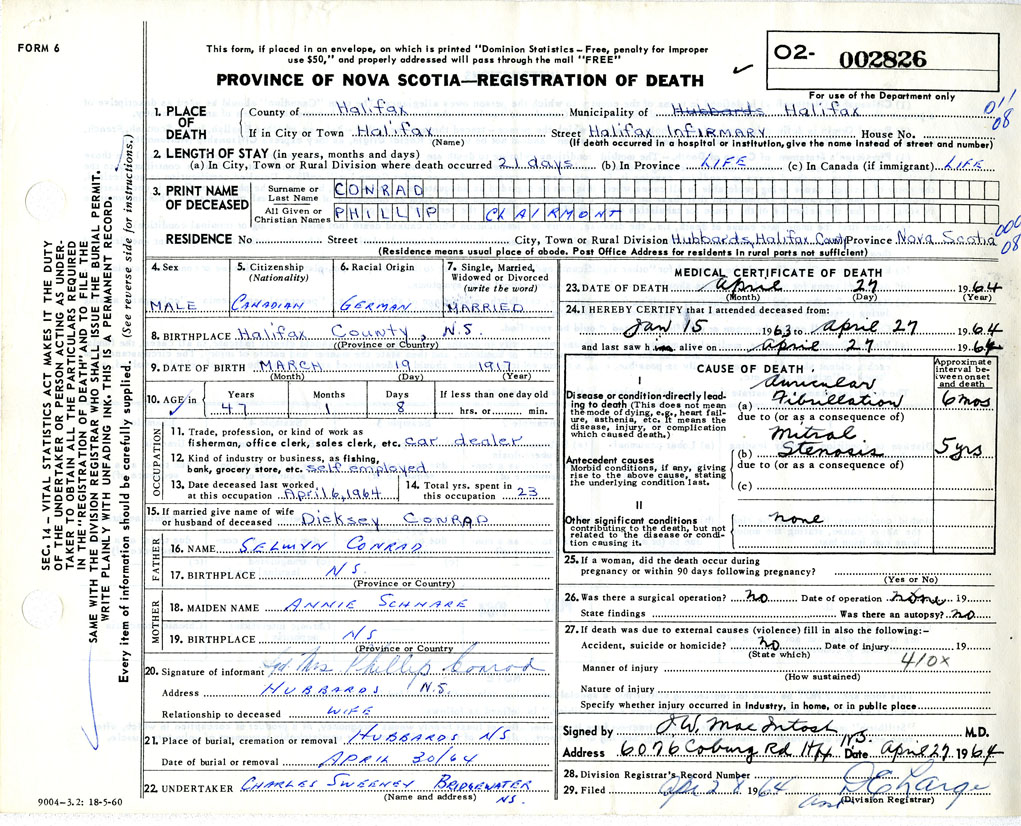 FORM 6
This form, if placed in an envelope, on which is printed "Dominion Statistics – Free, penalty for improper
use $50," and properly addressed will pass through the mail "FREE"
PROVINCE OF NOVA SCOTIA—REGISTRATION OF DEATH
O2- 002826
For use of the Department only
SEC. 14 – VITAL STATISTICS ACT MAKES IT THE DUTY
OF THE UNDERTAKER OR PERSON ACTING AS UNDER-
TAKER TO OBTAIN ALL THE PARTICULARS REQUIRED
IN THE "REGISTRATION OF DEATH" AND TO FILE THE
SAME WITH THE DIVISION REGISTRAR WHO SHALL ISSUE THE BURIAL PERMIT.
WRITE PLAINLY WITH UNFADING INK. THIS IS A PERMANENT RECORD.
Every item of information should be carefully supplied. (See reverse side for instructions.)
1. PLACE OF DEATH
County of Halifax Municipality of Hubbards Halifax 011 08
If in City or Town Halifax Street Halifax Infirmary House No.
(Name) (If death occurred in a hospital or institution, give name instead of street and number)
2. LENGTH OF STAY (in years, months and days)
(a) In City, Town or Rural Division where death occurred 21 days (b) In Province LIFE (c) In Canada (if immigrant) LIFE
3. PRINT NAME OF DECEASED
Surname or Last Name CONRAD
All Given or Christian Names PHILLIP CLAIRMONT
RESIDENCE No Street City, Town or Rural Division Hubbards, Halifax County Province Nova Scotia 000 08
(Residence means usual place of abode. Post Office Address for residents in rural parts not sufficient)
4. Sex MALE
5. Citizenship (Nationality) CANADIAN
6. Racial Origin GERMAN
7. Single, Married, Widowed or Divorced (write the word) MARRIED
8. BIRTHPLACE Halifax County, N.S.
(Province or Country)
9. DATE OF BIRTH MARCH 19 1917
(Month) (Day) (Year)
10. AGE Years 47 Months 1 Days 8 If less than one day old hrs. or min.
OCCUPATION
11. Trade, profession, or kind of work as
fisherman, office clerk, sales clerk, etc. car dealer
12. Kind of industry or business, as fishing,
bank, grocery store, etc. self employed
13. Date deceased last worked at this occupation April 6, 1964
14. Total yrs. spent in this occupation 23
15. If married give name of wife
or husband of deceased Dicksey CONRAD
FATHER
16. NAME SELWYN CONRAD
17. BIRTHPLACE NS
(Province or Country)
MOTHER
18. MAIDEN NAME ANNIE SCHNARE
19. BIRTHPLACE NS
(Province or Country
20. Signature of informant Sgd Mrs Phillip Conrad
Address HUBBARDS N.S.
Relationship to deceased WIFE
21. Place of burial, cremation or removal HUBBARDS NS
Date of burial or removal APRIL 30/64
22. UNDERTAKER CHARLES SWEENEY BRIDGEWATER
(Name and address) NS.
9004–3.2: 18-5-60
MEDICAL CERTIFICATE OF DEATH
23. DATE OF DEATH April 27 1964
(Month) (Day) (Year)
24. I HEREBY CERTIFY that I attended deceased from:
Jan 15 1963 to April 27 1964
and last saw him alive on April 27 1964
CAUSE OF DEATH
Approximate interval between onset and death
I
Disease or condition directly leading to death (This does not mean the mode of dying, e.g., heart failure, asthenia, etc. It means the disease, injury, or complication which caused death.)
(a) Auricular Fibrillation 6 mos
due to (or as a consequence of)
Antecedent causes
Morbid conditions, if any, giving rise to the above cause, stating the underlying condition last.
(b) Mitral Stenosis 5 yrs
due to (or as a consequence of)
(c)
II
Other significant conditions
contributing to the death, but not related to the disease or condition causing it.
none
25. If a woman, did the death occur during
pregnancy or within 90 days following pregnancy?
(Yes or No)
26. Was there a surgical operation? no Date of operation none 19
State findings Was there an autopsy? no.
27. If death was due to external causes (violence) fill in also the following:–
Accident, suicide or homicide? no Date of injury 19
(State which) 410x
Manner of injury
(How sustained)
Nature of injury
Specify whether injury occurred in industry, in home, or in public place
Signed by J.W. MacIntosh M.D.
Address 6076 Coburg Rd Hfx N.S. Date April 27. 1964
28. Division Registrar's Record Number
29. Filed Apr 28 1964 D E Large
(Division Registrar)